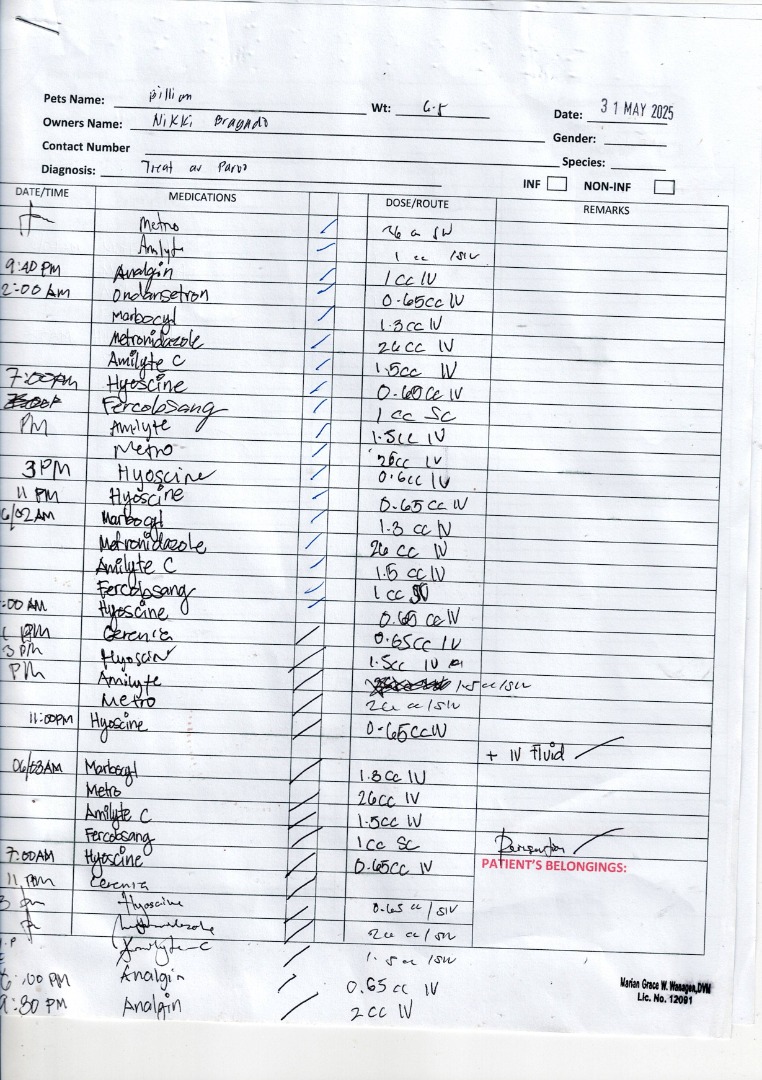 Pets Name: Billion Wt: 6.5 Date: 31 MAY 2025
Owners Name: Nikki Bragado Gender:
Contact Number Species:
Diagnosis: Treat as Parvo INF NON-INF
DATE/TIME MEDICATIONS DOSE/ROUTE REMARKS
Metro 26 cc SIV
Amlyte 1 cc /SIV
9:40 PM Analgin 1cc IV
2:00 AM Ondansetron 0.65cc IV
Marbocyl 1.3cc IV
Metronidazole 26cc IV
Amilyte C 1.5cc IV
7:00AM Hyoscine 0.65cc IV
Fercobsang 1 cc SC
PM Amilyte 1.5cc IV
Metro 26cc IV
3PM Hyoscine 0.6cc IV
11 PM Hyoscine 0.65 cc IV
6/02 AM Marbocyl 1.3 cc IV
Metronidazole 26 cc IV
Amilyte C 1.5 cc IV
Fercobsang 1 cc
:00 AM Hyoscine 0.65 cc IV
PM Cerenia 0.65cc IV
3 PM Hyoscin 1.5cc IV
PM Amilyte 1.5 cc/SIV
Metro 26 cc/SIV
11:00PM Hyoscine 0.65cc IV
+ IV Fluid
06/03AM Marbocyl 1.3cc IV
Metro 26cc IV
Amilyte C 1.5cc IV
Fercobsang 1cc SC
7:00AM Hyoscine 0.65cc IV
PATIENT'S BELONGINGS:
11 PM Cerenia
3 pm Hyoscine 0.65 cc/SIV
Metronidazole 26 cc/SIV
Amilyte-C 1.5 cc/SIV
6:00 PM Analgin 0.65 cc IV
9:30 PM Analgin 2cc IV
Marian Grace W. Wanagen, DVM
Lic. No. 12091